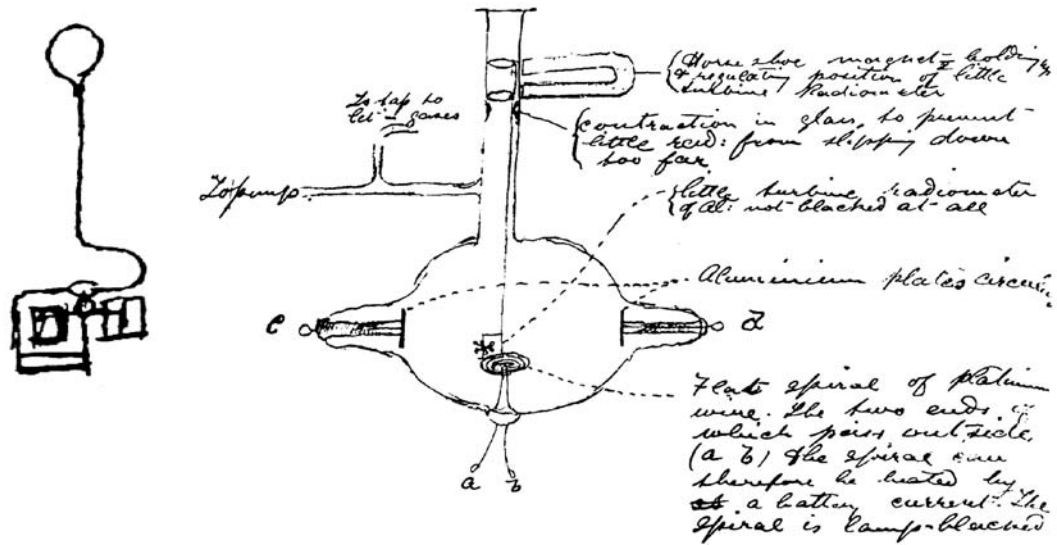 Horse shoe magnet holding up
& regulating position of little
turbine Radiometer
To tap to
let gases
contraction in glass, to prevent
little rad: from slipping down
too far
To pump
little turbine radiometer
of Al: not blacked at all
Aluminium plates
c
d
Flat spiral of platinum
wire. The two ends of
which pass outside
(a b) The spiral can
therefore be heated by
a battery current. The
spiral is lamp-blacked
a b